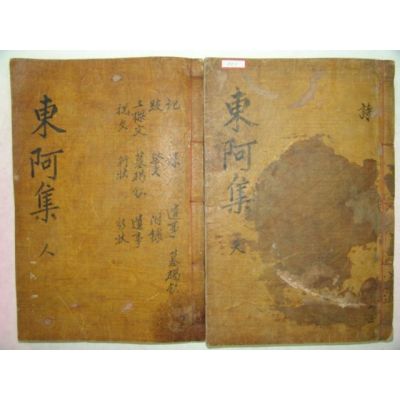 詩
東阿集
天
記
遺事 墓碣銘
跋 祭文 附錄
上樑文 墓碣銘 遺事
祝文 行狀 行狀
東阿集
人